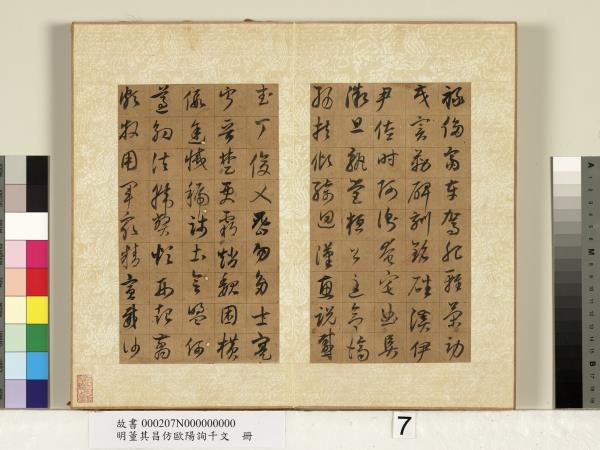 祿侈富車駕肥輕策功
茂實勒碑刻銘磻溪伊
尹佐時阿衡奄宅曲阜
微旦孰營桓公匡合濟
弱扶傾綺迴漢惠說感
武丁俊乂密勿多士寔
寧晉楚更霸趙魏困橫
假途滅虢踐土會盟何
遵約法韓弊煩刑起翦
頗牧用軍最精宣威沙
故書 000207N000000000
明董其昌仿歐陽詢千文 冊
7